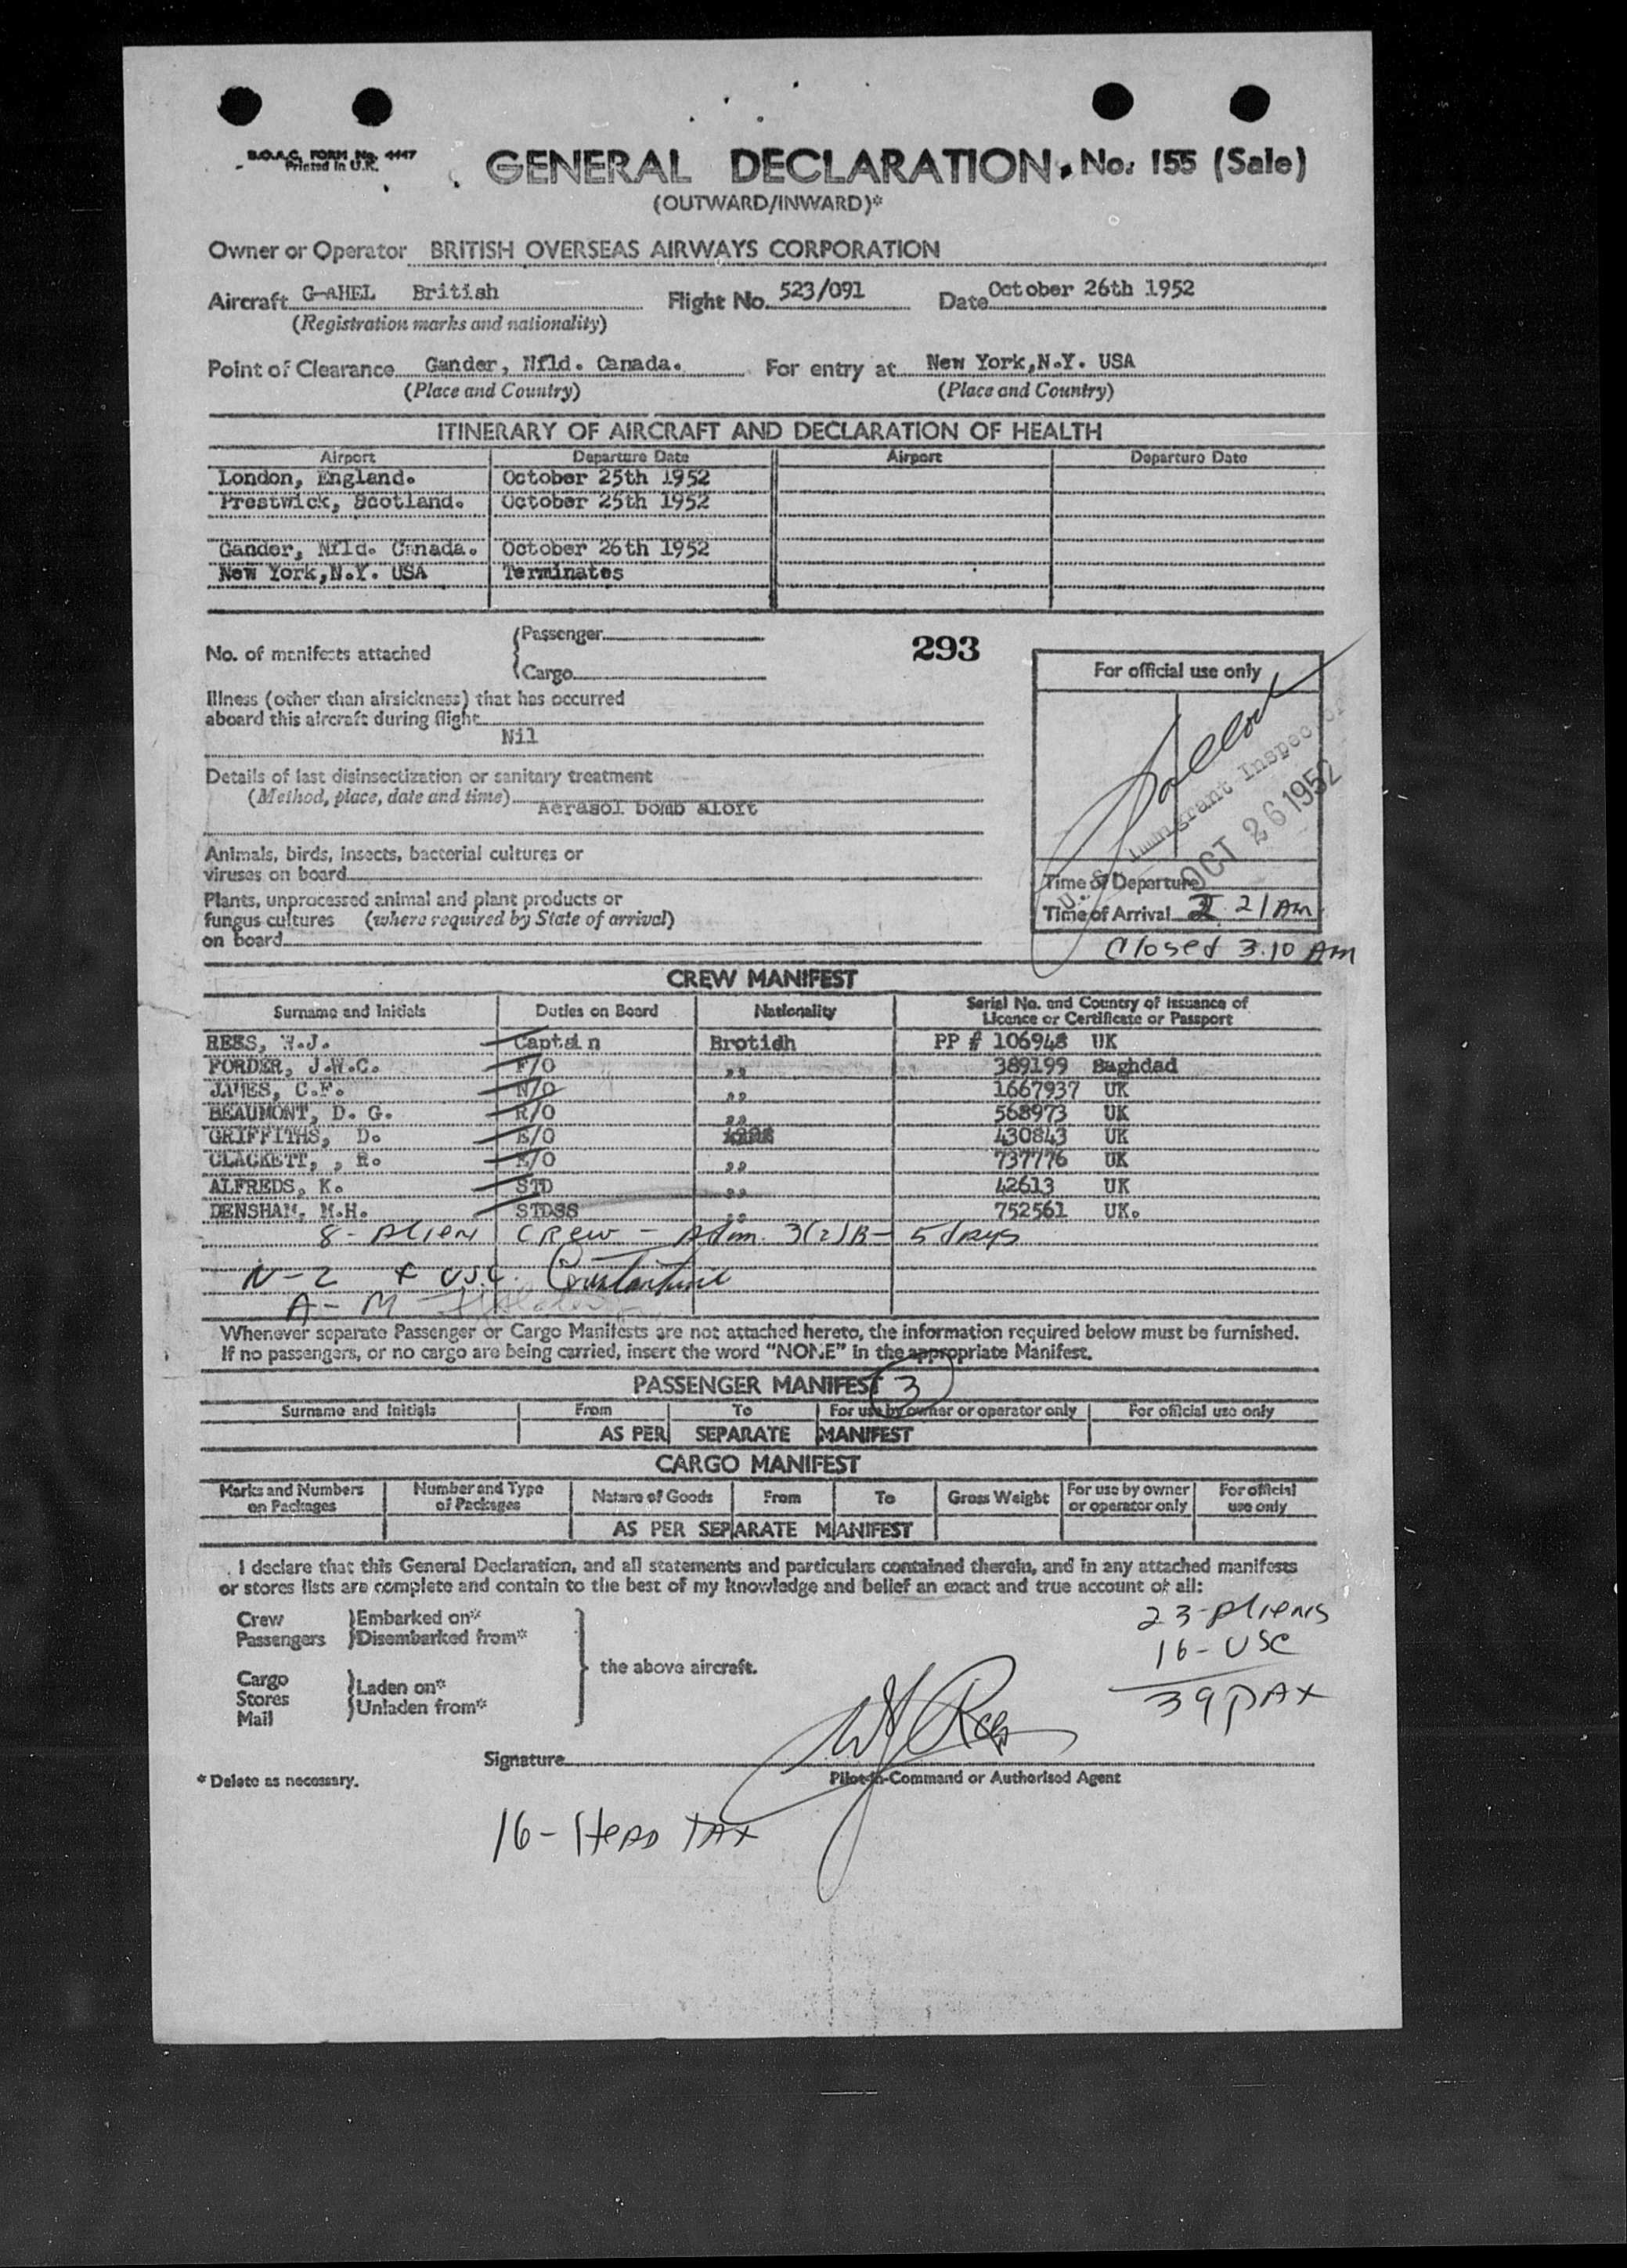 B.O.A.C. FORM No. 4447
Printed in U.K.
GENERAL DECLARATION. No: 155 (Sale)
(OUTWARD/INWARD)*
Owner or Operator BRITISH OVERSEAS AIRWAYS CORPORATION
Aircraft G-AHEL British Flight No. 523/091 Date October 26th 1952
(Registration marks and nationality)
Point of Clearance Gander, Nfld. Canada. For entry at New York,N.Y. USA
(Place and Country) (Place and Country)
ITINERARY OF AIRCRAFT AND DECLARATION OF HEALTH
Airport Departure Date Airport Departure Date
London, England. October 25th 1952
Prestwick, Scotland. October 25th 1952
Gander, Nfld. Canada. October 26th 1952
New York,N.Y. USA Terminates
No. of manifests attached
Passenger
Cargo
293
For official use only
Illness (other than airsickness) that has occurred
aboard this aircraft during flight
Nil
Details of last disinsectization or sanitary treatment
(Method, place, date and time)
Aerasol bomb aloft
Immigrant Inspector
OCT 26 1952
Animals, birds, insects, bacterial cultures or
viruses on board
Time of Departure
Plants, unprocessed animal and plant products or
fungus cultures (where required by State of arrival)
on board
Time of Arrival 2 21 AM
Closed 3.10 AM
CREW MANIFEST
Surname and Initials Duties on Board Nationality Serial No. and Country of Issuance of
Licence or Certificate or Passport
REES, W.J. Captain Brotidh PP # 106948 UK
FORDER, J.W.C. F/O ,, 389199 Baghdad
JAMES, C.F. N/O ,, 1667937 UK
BEAUMONT, D. G. R/O ,, 568973 UK
GRIFFITHS, D. E/O 430843 UK
CLACKETT, , R. E/O ,, 737776 UK
ALFREDS, K. STD ,, 42613 UK
DENSHAM, M.H. STDSS ,, 752561 UK.
8 - Alien Crew - Adm. 3(2)B - 5 days
N-2 + USC. Constantine
A - M
Whenever separate Passenger or Cargo Manifests are not attached hereto, the information required below must be furnished.
If no passengers, or no cargo are being carried, insert the word "NONE" in the appropriate Manifest.
PASSENGER MANIFEST 3
Surname and Initials From To For use by owner or operator only For official use only
AS PER SEPARATE MANIFEST
CARGO MANIFEST
Marks and Numbers on Packages Number and Type of Packages Nature of Goods From To Gross Weight For use by owner or operator only For official use only
AS PER SEPARATE MANIFEST
I declare that this General Declaration, and all statements and particulars contained therein, and in any attached manifests
or stores lists are complete and contain to the best of my knowledge and belief an exact and true account of all:
Crew Embarked on*
Passengers Disembarked from*
Cargo
Stores
Mail
Laden on*
Unladen from*
the above aircraft.
23-Aliens
16-USC
39 PAX
Signature WJ Rees
Pilot-in-Command or Authorised Agent
* Delete as necessary.
16 - Head Tax